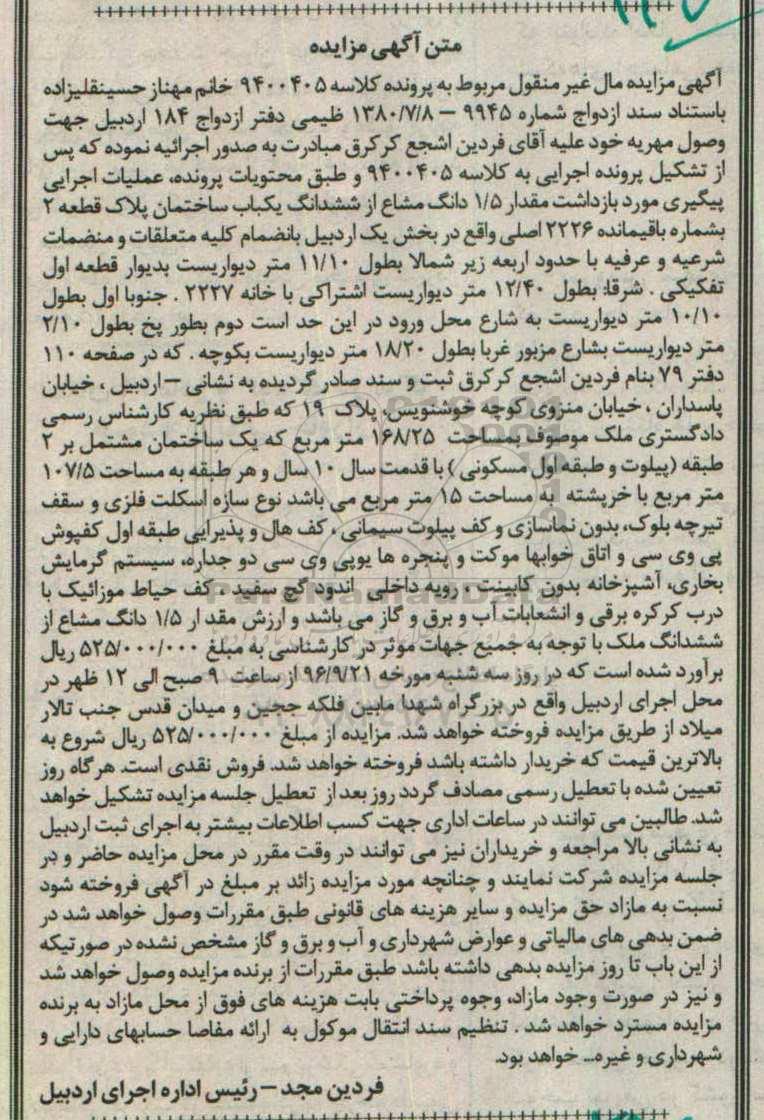 متن آگهی مزایده
آگهی مزایده مال غیر منقول مربوط به پرونده کلاسه ۹۴۰۰۴۰۵ خانم مهناز حسینقلیزاده
باستناد سند ازدواج شماره ۹۹۴۵ – ۱۳۸۰/۷/۸ ظیمی دفتر ازدواج ۱۸۴ اردبیل جهت
وصول مهریه خود علیه آقای فردین اشجع کرکرق مبادرت به صدور اجرائیه نموده که پس
از تشکیل پرونده اجرایی به کلاسه ۹۴۰۰۴۰۵ و طبق محتویات پرونده، عملیات اجرایی
پیگیری مورد بازداشت مقدار ۱/۵ دانگ مشاع از ششدانگ یکباب ساختمان پلاک قطعه ۲
بشماره باقیمانده ۲۲۲۶ اصلی واقع در بخش یک اردبیل بانضمام کلیه متعلقات و منضمات
شرعیه و عرفیه با حدود اربعه زیر شمالا بطول ۱۱/۱۰ متر دیواریست بدیوار قطعه اول
تفکیکی . شرقا: بطول ۱۲/۴۰ متر دیواریست اشتراکی با خانه ۲۲۲۷ . جنوبا اول بطول
۱۰/۱۰ متر دیواریست به شارع محل ورود در این حد است دوم بطور پخ بطول ۲/۱۰
متر دیواریست بشارع مزبور غربا بطول ۱۸/۲۰ متر دیواریست بکوچه . که در صفحه ۱۱۰
دفتر ۷۹ بنام فردین اشجع کرکرق ثبت و سند صادر گردیده به نشانی – اردبیل ، خیابان
پاسداران ، خیابان منزوی کوچه خوشنویس، پلاک ۱۹ که طبق نظریه کارشناس رسمی
دادگستری ملک موصوف بمساحت ۱۶۸/۲۵ متر مربع که یک ساختمان مشتمل بر ۲
طبقه (پیلوت و طبقه اول مسکونی) با قدمت سال ۱۰ سال و هر طبقه به مساحت ۱۰۷/۵
متر مربع با خرپشته به مساحت ۱۵ متر مربع می باشد نوع سازه اسکلت فلزی و سقف
تیرچه بلوک، بدون نماسازی و کف پیلوت سیمانی ، کف هال و پذیرایی طبقه اول کفپوش
پی وی سی و اتاق خوابها موکت و پنجره ها یوپی وی سی دو جداره، سیستم گرمایش
بخاری، آشپزخانه بدون کابینت ، رویه داخلی اندود گچ سفید ، کف حیاط موزائیک با
درب کرکره برقی و انشعابات آب و برق و گاز می باشد و ارزش مقد ار ۱/۵ دانگ مشاع از
ششدانگ ملک با توجه به جمیع جهات موثر در کارشناسی به مبلغ ۵۲۵/۰۰۰/۰۰۰ ریال
برآورد شده است که در روز سه شنبه مورخه ۹۶/۹/۲۱ از ساعت ۹ صبح الی ۱۲ ظهر در
محل اجرای اردبیل واقع در بزرگراه شهدا مابین فلکه ججین و میدان قدس جنب تالار
میلاد از طریق مزایده فروخته خواهد شد. مزایده از مبلغ ۵۲۵/۰۰۰/۰۰۰ ریال شروع به
بالاترین قیمت که خریدار داشته باشد فروخته خواهد شد. فروش نقدی است. هرگاه روز
تعیین شده با تعطیل رسمی مصادف گردد روز بعد از تعطیل جلسه مزایده تشکیل خواهد
شد. طالبین می توانند در ساعات اداری جهت کسب اطلاعات بیشتر به اجرای ثبت اردبیل
به نشانی بالا مراجعه و خریداران نیز می توانند در وقت مقرر در محل مزایده حاضر و در
جلسه مزایده شرکت نمایند و چنانچه مورد مزایده زائد بر مبلغ در آگهی فروخته شود
نسبت به مازاد حق مزایده و سایر هزینه های قانونی طبق مقررات وصول خواهد شد در
ضمن بدهی های مالیاتی و عوارض شهرداری و آب و برق و گاز مشخص نشده در صورتیکه
از این باب تا روز مزایده بدهی داشته باشد طبق مقررات از برنده مزایده وصول خواهد شد
و نیز در صورت وجود مازاد، وجوه پرداختی بابت هزینه های فوق از محل مازاد به برنده
مزایده مسترد خواهد شد . تنظیم سند انتقال موکول به ارائه مفاصا حسابهای دارایی و
شهرداری و غیره... خواهد بود.
فردین مجد – رئیس اداره اجرای اردبیل